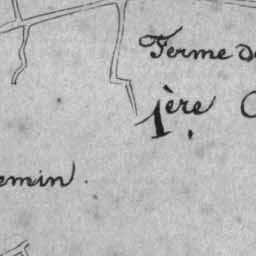 Ferme de
1ère
emin.